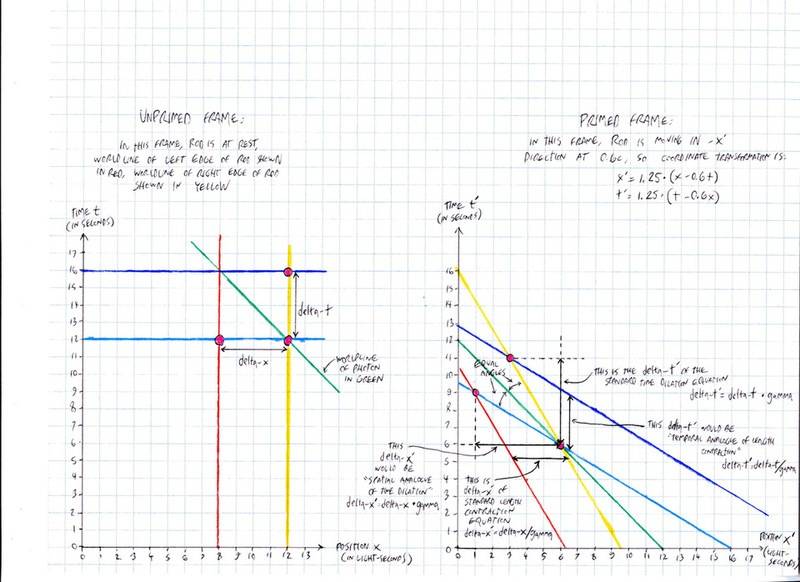 UNPRIMED FRAME:
IN THIS FRAME, ROD IS AT REST,
WORLDLINE OF LEFT EDGE OF ROD SHOWN
IN RED, WORLDLINE OF RIGHT EDGE OF ROD
SHOWN IN YELLOW
TIME t
(IN SECONDS)
17
16
15
14
13
12
11
10
9
8
7
6
5
4
3
2
1
0
0 1 2 3 4 5 6 7 8 9 10 11 12 13
POSITION X
(IN LIGHT-SECONDS)
delta-t
delta-x
WORLDLINE
OF PHOTON
IN GREEN
PRIMED FRAME:
IN THIS FRAME, ROD IS MOVING IN -X'
DIRECTION AT 0.6c, SO COORDINATE TRANSFORMATION IS:
x' = 1.25 · (x - 0.6t)
t' = 1.25 · (t - 0.6x)
TIME t'
(IN SECONDS)
16
15
14
13
12
11
10
9
8
7
6
5
4
3
2
1
0
0 1 2 3 4 5 6 7 8 9 10 11 12 13 14 15 16 17
POSITION X'
(LIGHT-
SECONDS)
EQUAL
ANGLES
THIS IS THE delta-t' OF THE
STANDARD TIME DILATION EQUATION
delta-t' = delta-t · gamma
THIS delta-t' WOULD BE
"TEMPORAL ANALOGUE OF LENGTH
CONTRACTION"
delta-t' = delta-t/gamma
THIS
delta-x'
WOULD BE
"SPATIAL ANALOGUE
OF TIME DILATION"
delta-x' = delta-x · gamma
THIS IS
delta-x' OF
STANDARD LENGTH
CONTRACTION
EQUATION
delta-x' = delta-x/gamma